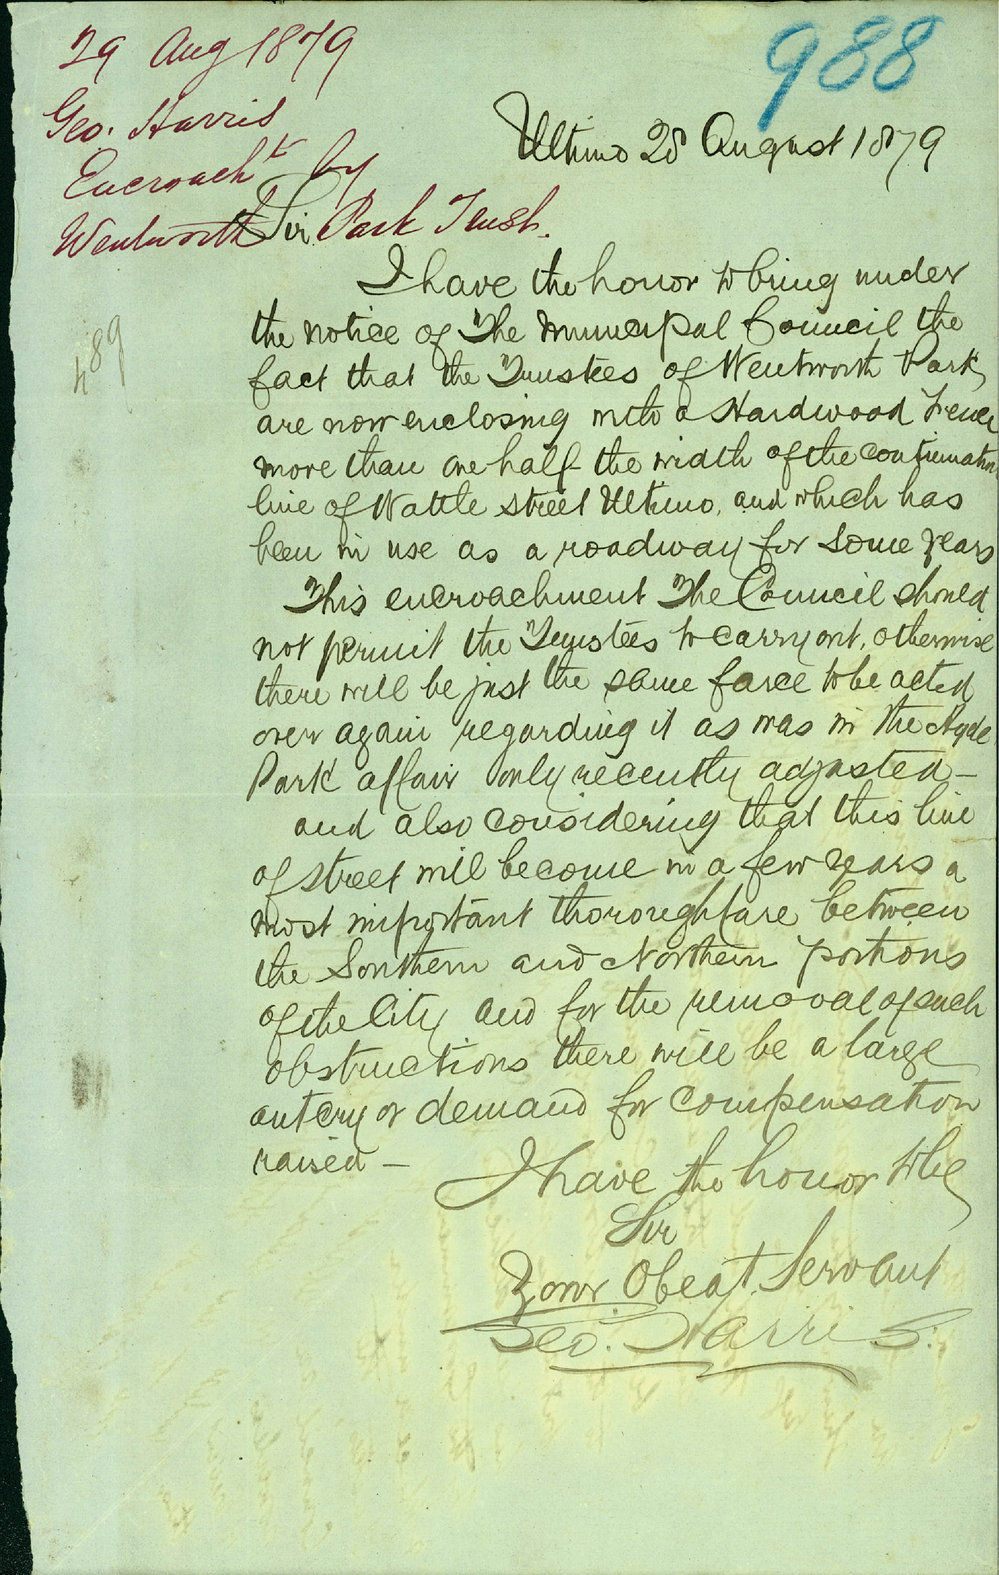 988
29 Aug 1879
Geo. Harris
Encroacht by
Wentworth Park Trust.
Ultimo 28 August 1879
Sir
I have the honor to bring under
the notice of The Municipal Council the
fact that the Trustees of Wentworth Park,
are now enclosing with a Hardwood Fence
more than one half the width of the continuation
line of Wattle Street Ultimo, and which has
been in use as a roadway for some years
This encroachment The Council should
not permit the Trustees to carry out, otherwise
there will be just the same farce to be acted
over again regarding it as was in the Hyde
Park affair only recently adjusted —
and also considering that this line
of street will become in a few years a
most important thoroughfare between
the Southern and Northern portions
of the City and for the removal of such
obstructions there will be a large
outcry or demand for compensation
raised —
489
I have the honor to be
Sir
Your Obeat. Servant
Geo. Harris.